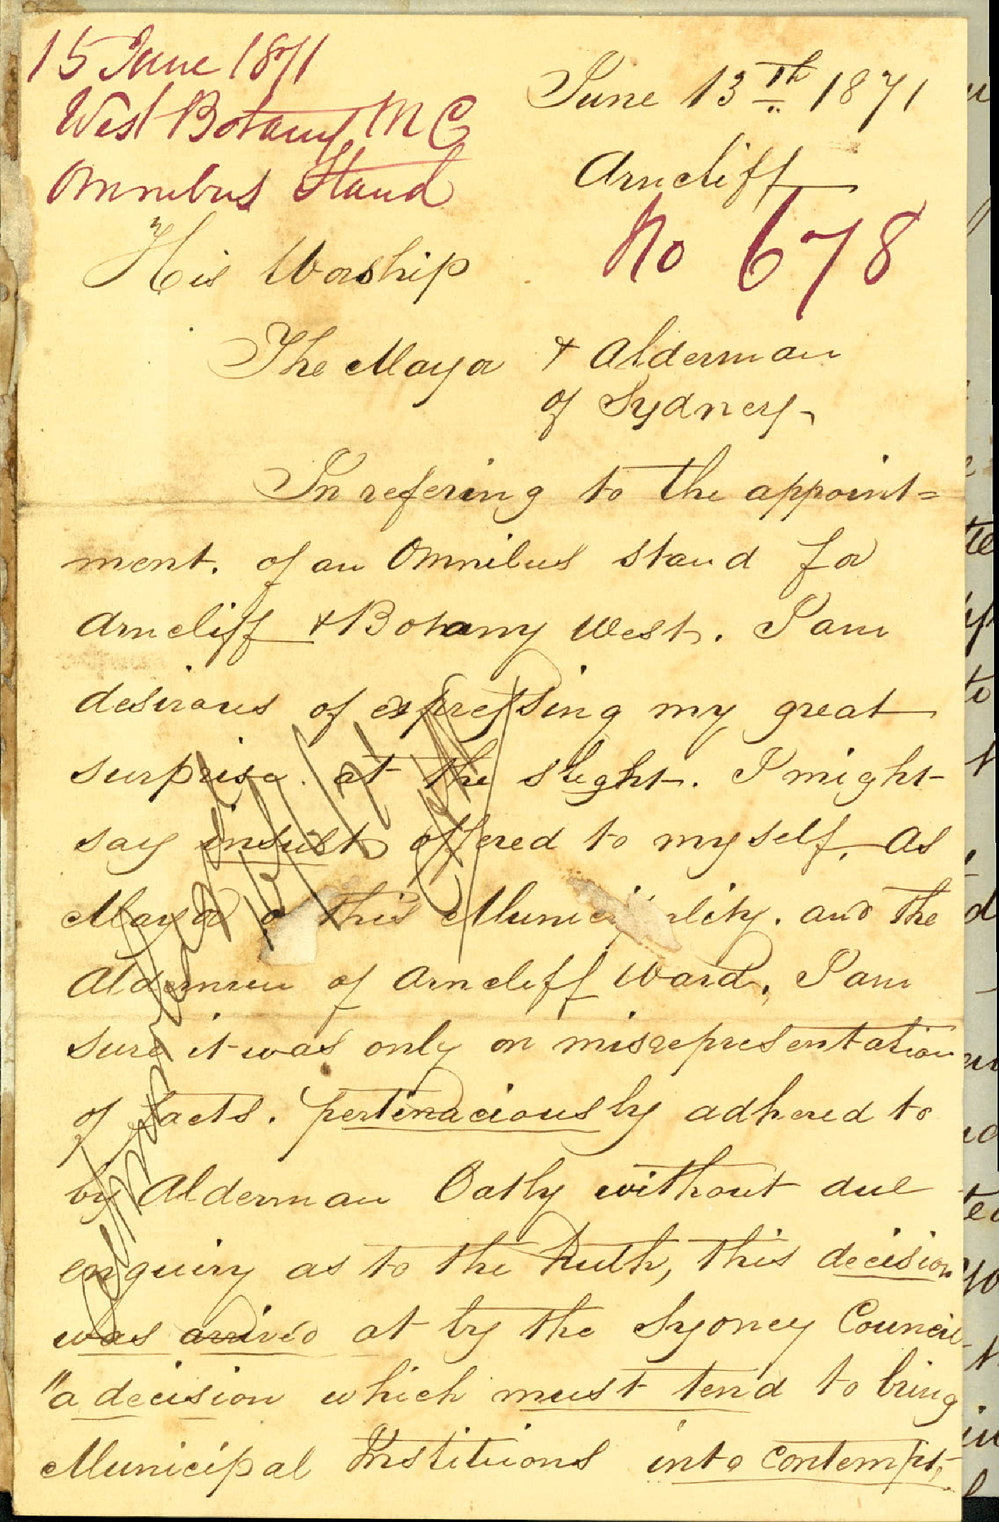 15 June 1871
West Botany M C
Omnibus Stand
June 13th 1871
Arncliff
No 678
His Worship
The Mayor & Alderman
of Sydney
In refering to the appoint=
ment. of an Omnibus stand for
Arncliff & Botany West. I am
desirous of expressing my great
surprise. at the slight. I might
say insult offered to myself, as
Mayor o this Munici lity. and the
Aldermen of Arncliff Ward, I am
sure it was only on misrepresentation
of facts. pertinaciously adhered to
by Alderman Oatly without due
enquiry as to the truth, this decision
was arrived at by the Sydney Council
"a decision which must tend to bring
Municipal Institiions into contempt,